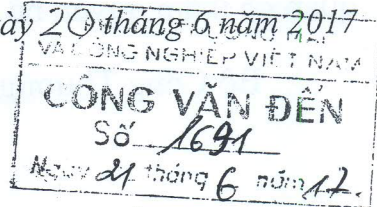 ày 20 tháng 6 năm 2017
VÀ CÔNG NGHIỆP VIỆT NAM
CÔNG VĂN ĐẾN
Số 1691
Ngày 21 tháng 6 năm 17.